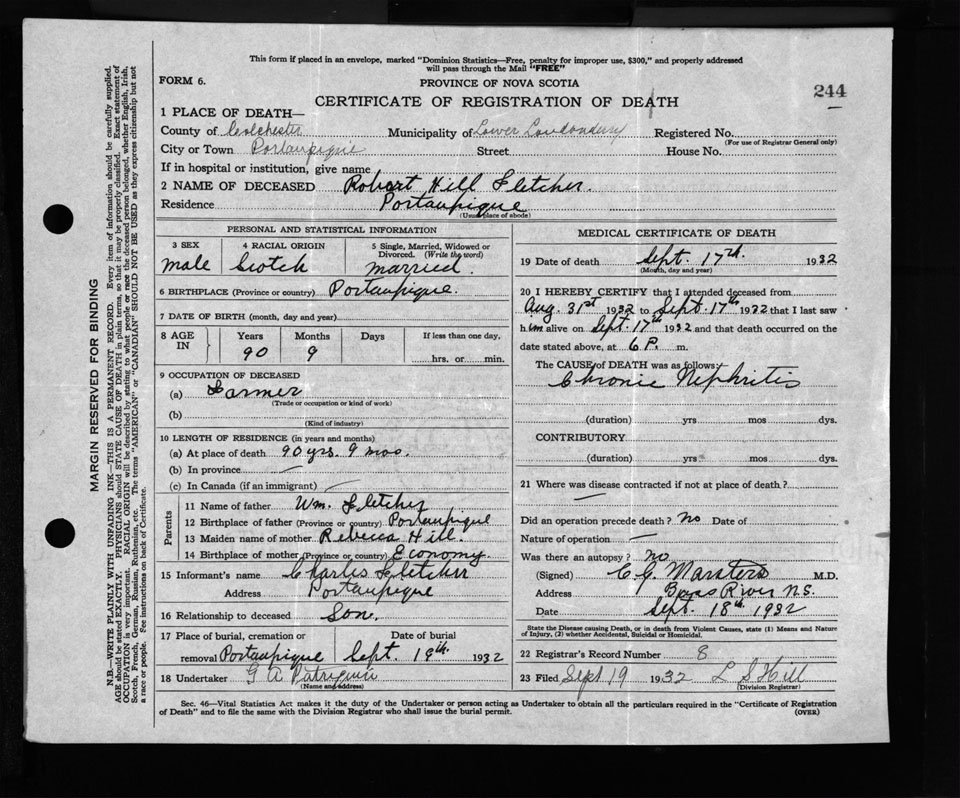 This form if placed in an envelope, marked "Dominion Statistics—Free, penalty for improper use, $300," and properly addressed
will pass through the Mail "FREE"
FORM 6.
PROVINCE OF NOVA SCOTIA
244
CERTIFICATE OF REGISTRATION OF DEATH
1 PLACE OF DEATH—
County of Colchester Municipality of Lower Londonderry Registered No.
(For use of Registrar General only)
City or Town Portaupique Street House No.
If in hospital or institution, give name
2 NAME OF DECEASED Robert Hill Fletcher.
Residence Portaupique
(Usual place of abode)
PERSONAL AND STATISTICAL INFORMATION
3 SEX 4 RACIAL ORIGIN 5 Single, Married, Widowed or
Divorced. (Write the word)
male Scotch married.
6 BIRTHPLACE (Province or country) Portaupique.
7 DATE OF BIRTH (month, day and year)
8 AGE IN Years Months Days If less than one day,
90 9 hrs. or min.
9 OCCUPATION OF DECEASED
(a) Farmer
(Trade or occupation or kind of work)
(b)
(Kind of industry)
10 LENGTH OF RESIDENCE (in years and months)
(a) At place of death 90 yrs. 9 mos.
(b) In province —
(c) In Canada (if an immigrant) —
Parents
11 Name of father Wm. Fletcher
12 Birthplace of father (Province or country) Portaupique
13 Maiden name of mother Rebecca Hill.
14 Birthplace of mother (Province or country) Economy.
15 Informant's name Charles Fletcher
Address Portaupique
16 Relationship to deceased Son.
17 Place of burial, cremation or Date of burial
removal Portaupique Sept. 19th. 1932
18 Undertaker G A
(Name and address)
MEDICAL CERTIFICATE OF DEATH
19 Date of death Sept. 17th. 1932
(Month, day and year)
20 I HEREBY CERTIFY that I attended deceased from
Aug. 31st 1932 to Sept. 17th 1932 that I last saw
him alive on Sept. 17th 1932 and that death occurred on the
date stated above, at 6 P. m.
The CAUSE of DEATH was as follows:—
Chronic Nephritis
(duration) yrs mos dys.
CONTRIBUTORY
(duration) yrs mos dys.
21 Where was disease contracted if not at place of death? —
Did an operation precede death? No Date of
Nature of operation —
Was there an autopsy? No
(Signed) C. G. Marsters M.D.
Address Bass River N.S.
Date Sept. 18th. 1932
State the Disease causing Death, or in death from Violent Causes, state (1) Means and Nature
of Injury, (2) whether Accidental, Suicidal or Homicidal.
22 Registrar's Record Number 8
23 Filed Sept 19 1932 L S Hill
(Division Registrar)
Sec. 46—Vital Statistics Act makes it the duty of the Undertaker or person acting as Undertaker to obtain all the particulars required in the "Certificate of Registration
of Death" and to file the same with the Division Registrar who shall issue the burial permit.
(OVER)
MARGIN RESERVED FOR BINDING
N.B.—WRITE PLAINLY WITH UNFADING INK—THIS IS A PERMANENT RECORD. Every item of information should be carefully supplied.
AGE should be stated EXACTLY. PHYSICIANS should STATE CAUSE OF DEATH in plain terms, so that it may be properly classified. Exact statement of
OCCUPATION is very important. RACIAL ORIGIN will be described by stating to what people or race the deceased person belonged, whether English, Irish,
Scotch, French, German, Russian, Ruthenian, etc. The terms "AMERICAN" or "CANADIAN" SHOULD NOT BE USED as they express citizenship but not
a race or people. See instructions on back of Certificate.